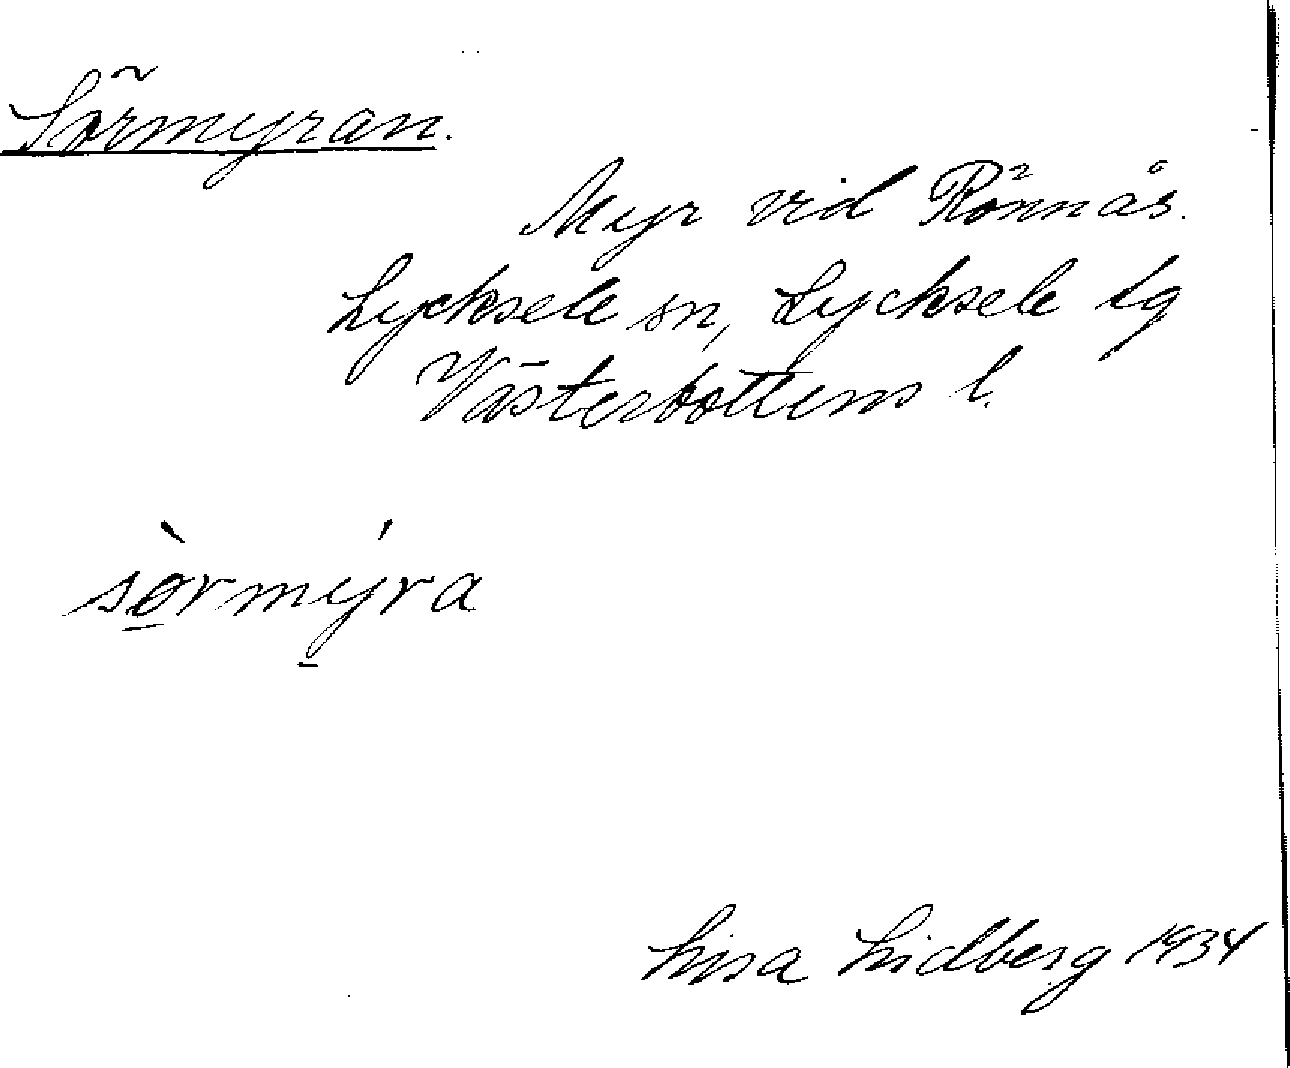 Sörmyran.
Myr vid Rönnäs.
Lycksele sn, Lycksele lg
Västerbottens l.
sòrmýra
Lisa Lidberg 1934